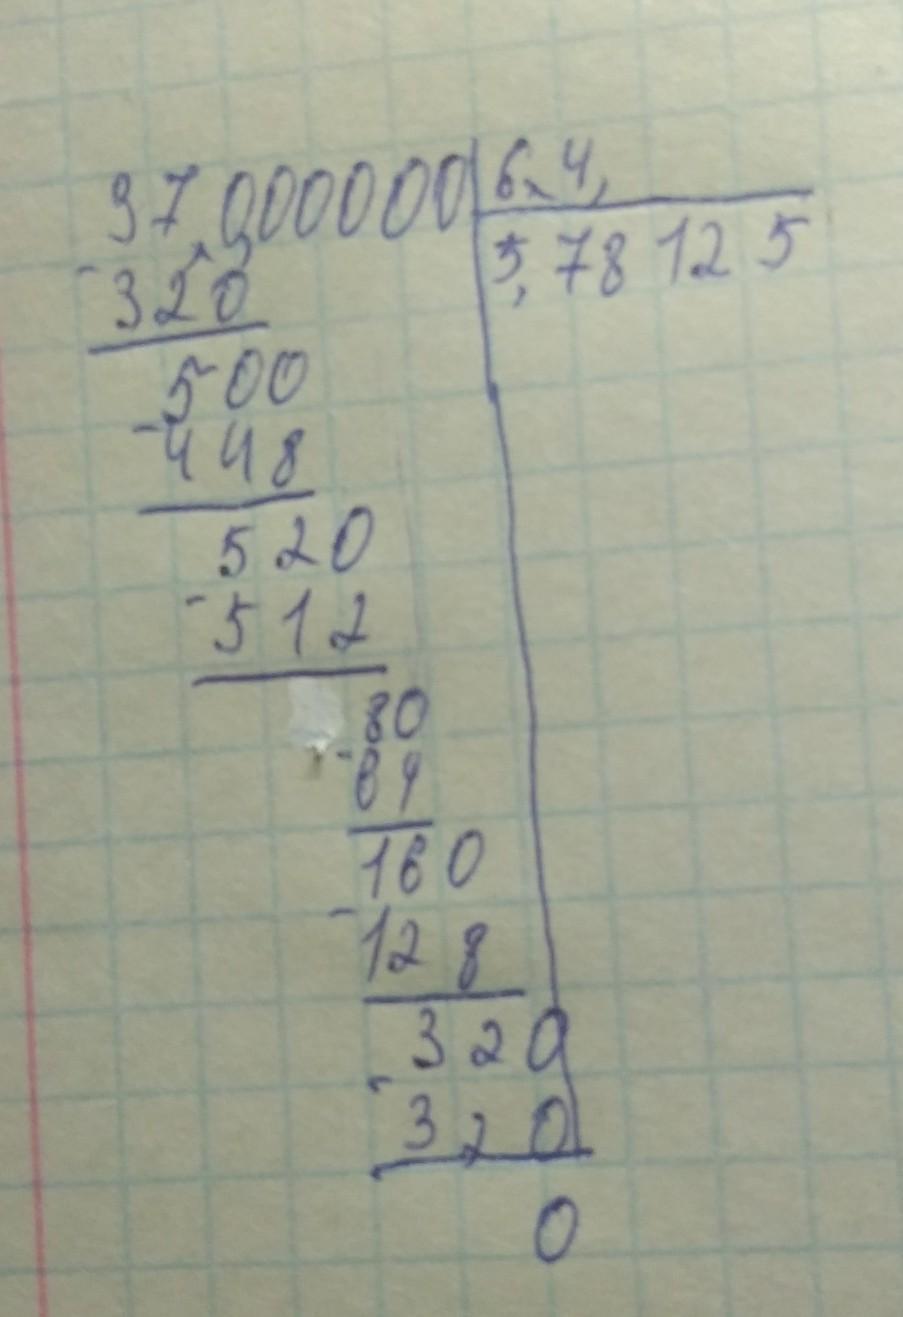 37,000000 6,4,
5,78125
-320
500
-448
520
-512
80
-64
160
-128
320
-320
0